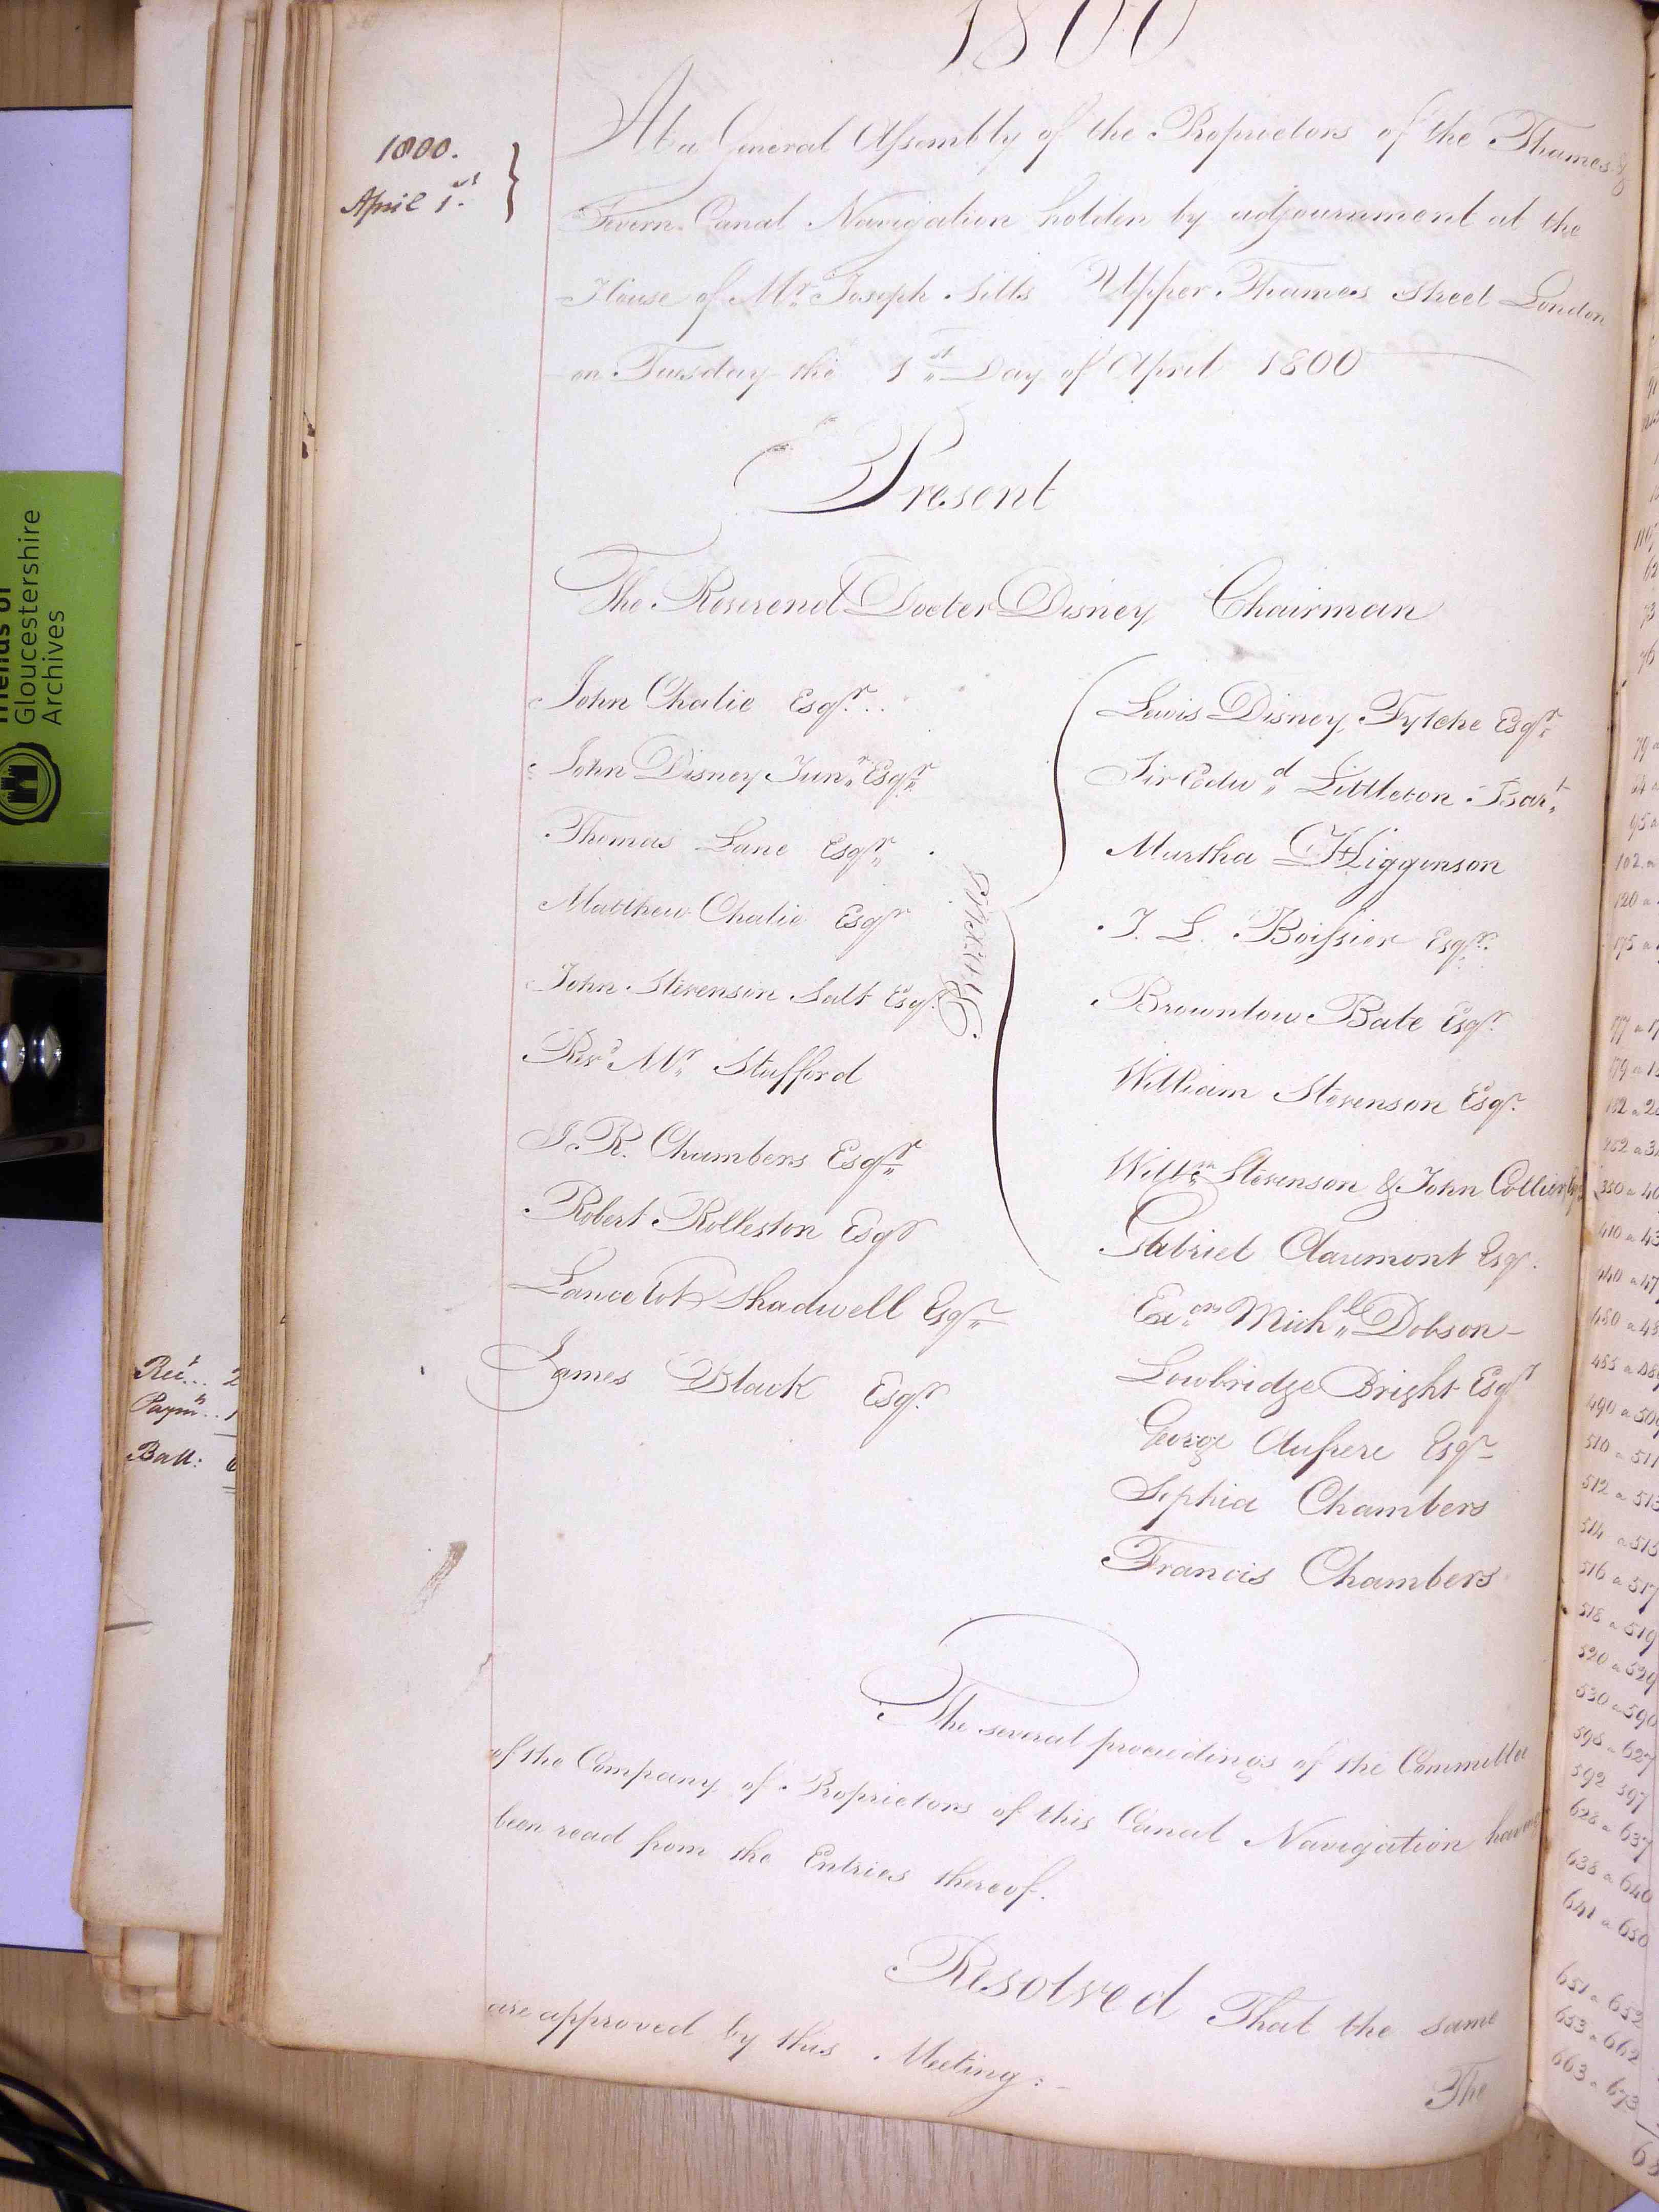 1800
1800.
April 1st
At a General Assembly of the Proprietors of the Thames &
Severn Canal Navigation holden by adjournment at the
House of Mr. Joseph Sills Upper Thames Street London
on Tuesday the 1st Day of April 1800
Present
The Reverend Docter Disney Chairman
John Chalie Esqr.
John Disney Junr. Esqr.
Thomas Lane Esqr.
Matthew Chalie Esqr
John Stevenson Salt Esqr.
Revd. Mr. Stafford
J. R. Chambers Esqr.
Robert Rolleston Esqr
Lancelot Shadwell Esqr.
James Black Esqr.
Proxies
Lewis Disney Fytche Esqr.
Sir Edwd. Littleton Bart.
Martha Higginson
J. L. Boissier Esqr.
Brownlow Bate Esqr.
William Stevenson Esqr.
Willm. Stevenson & John Collier
Gabriel Clarmont Esqr.
Exors. Michl. Dobson
Lowbridge Bright Esqr
George Aufrere Esqr.
Sophia Chambers
Francis Chambers
The several proceedings of the Committee
of the Company of Proprietors of this Canal Navigation having
been read from the Entries thereof.
Resolved That the same
are approved by this Meeting:-
The
Friends of
Gloucestershire
Archives
Rect... 2
Paymts.. 1
Ball: 6
177 a 17
179 a 1
182 a 2
252 a 3
350 a 40
410 a 43
440 a 47
480 a 48
485 a 489
490 a 509
510 a 511
512 a 513
514 a 515
516 a 517
518 a 519
520 a 529
530 a 590
598 a 627
592 597
628 a 637
638 a 640
641 a 650
651 a 652
653 a 662
663 a 673